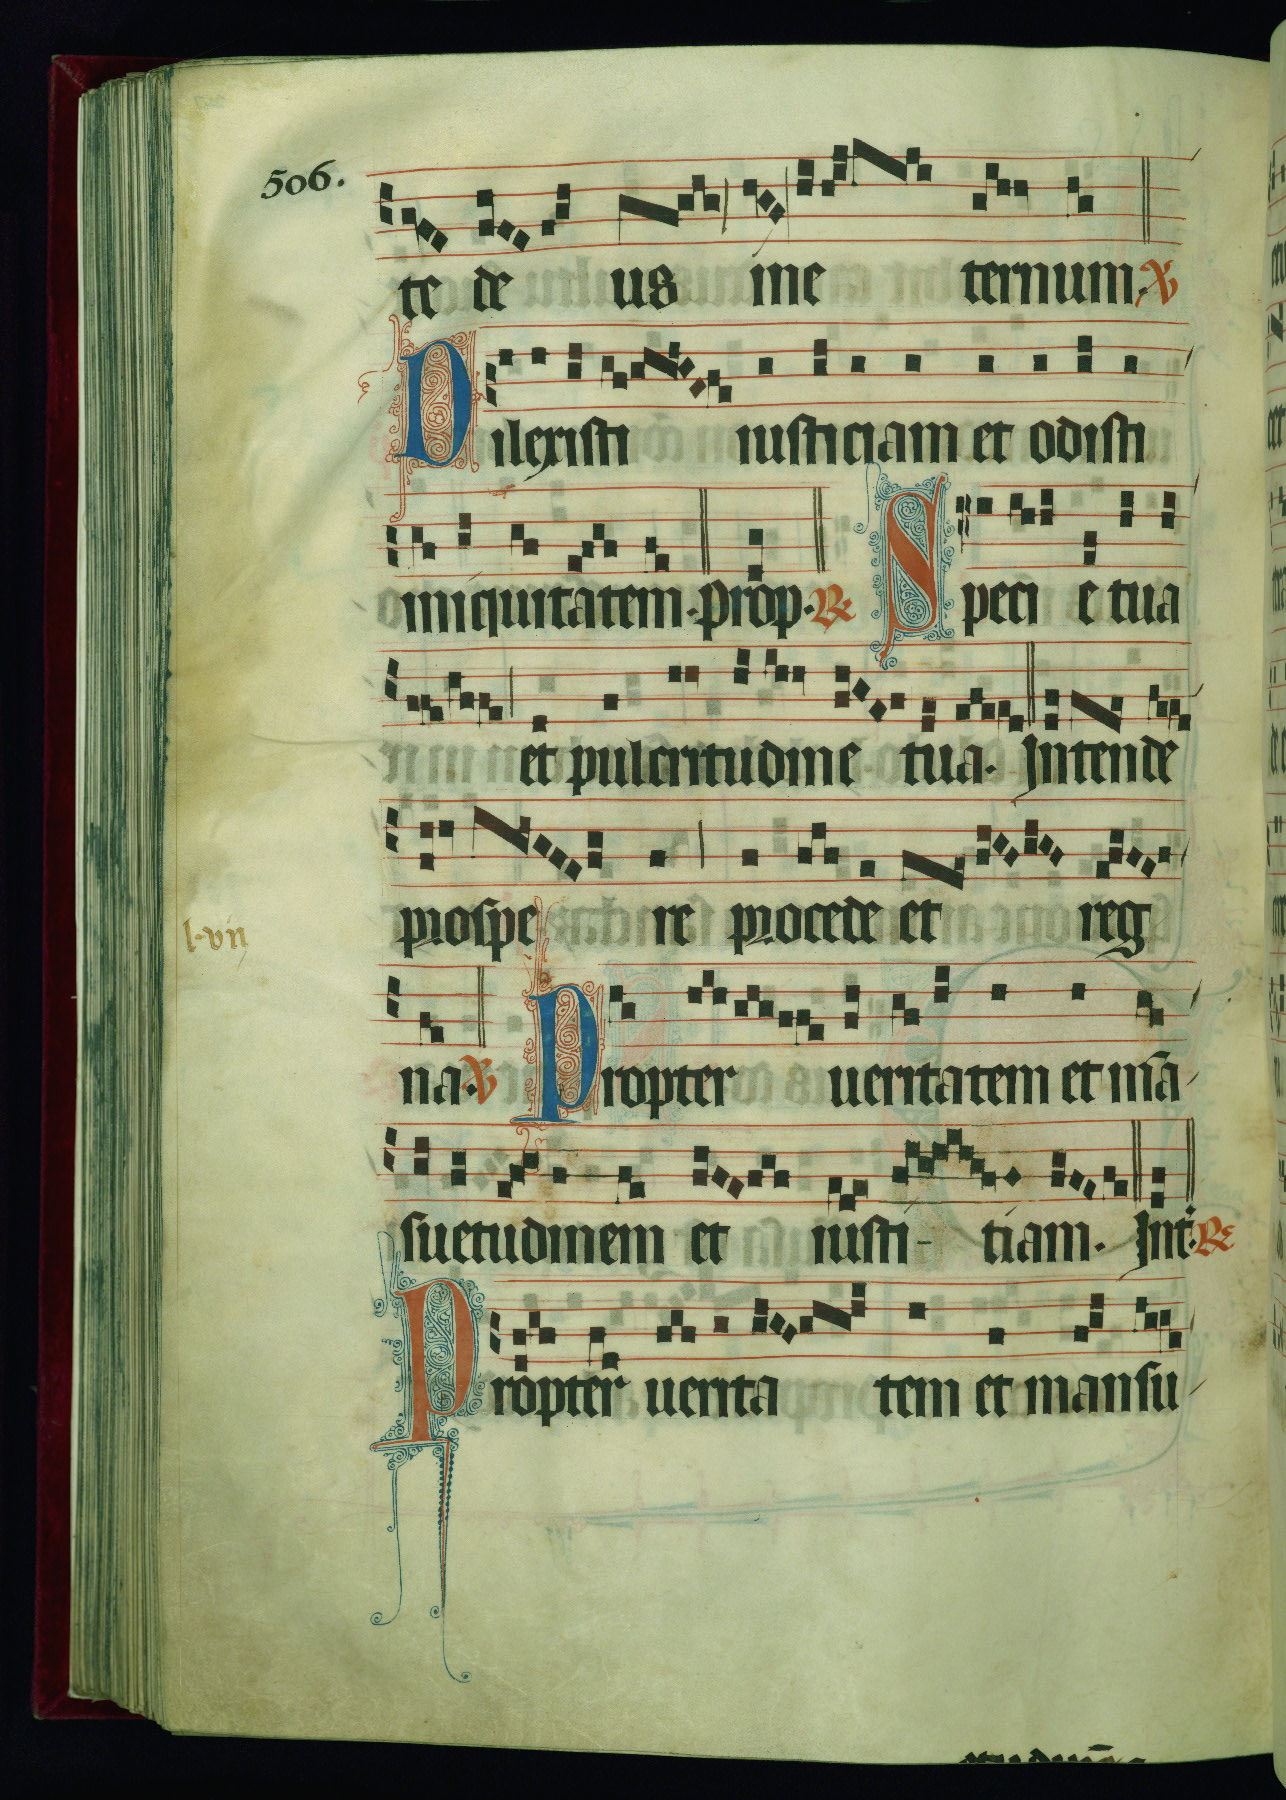 506.
te de us ine ternum. ℣
Dilexisti iusticiam et odisti
iniquitatem. Prop. ℟ Speci e tua
et pulcritudine tua. Intende
prospe re procede et reg
l. vii
na. ℣ Propter ueritatem et mā
suetudinem et iusti- tiam. Int. ℟
Propter uerita tem et mansu